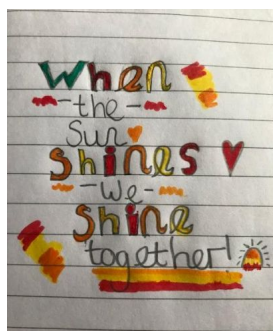 When
-the-
Sun
shines
-we-
shine
together!